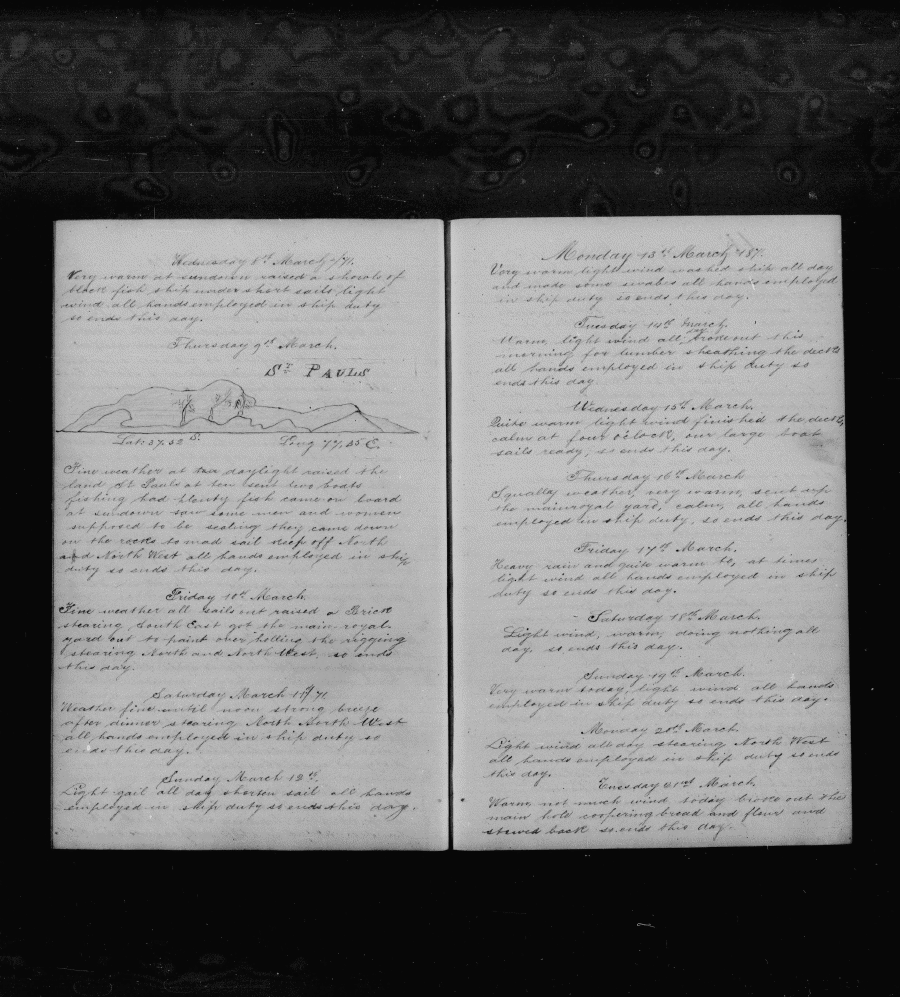 Wednesday 8th March /71.
Very warm at sundown raised a shoals of
black fish ship under short sails light
wind all hands employed in ship duty
so ends this day.
Thursday 9th March.
St PAULS
Lat: 37.52 S. Long 77.35 E.
Fine weather at daylight raised the
land St Pauls at ten sent two boats
fishing had plenty fish came on board
at sundown saw some men and women
supposed to be sealing they came down
on the rocks to mad sail off North
and North West all hands employed in ship
duty so ends this day.
Friday 10th March.
Fine weather all sails set raised a Brick
stearing South East got the main royal
yard out to paint over the rigging
stearing North and North West. so ends
this day.
Saturday March 11th /71
Weather fine until noon strong breeze
after dinner stearing North North West
all hands employed in ship duty so
ends this day.
Sunday March 12th.
Light gail all day shorten sail all hands
employed in ship duty so ends this day.
Monday 13th March 187.
Very warm light wind washed ship all day
and made some swabs all hands employed
in ship duty so ends this day.
Tuesday 14th March.
Warm, light wind all day broke out this
morning for lumber sheathing the decks
all hands employed in ship duty so
ends this day
Wednesday 15th March.
Quite warm light wind finished the decks,
calm at four o'clock, our large boat
sails ready, so ends this day.
Thursday 16th March
Squally weather, very warm, sent up
the main royal yard, calm, all hands
employed in ship duty, so ends this day.
Friday 17th March.
Heavy rain and quite warm at times
light wind all hands employed in ship
duty so ends this day.
Saturday 18th March.
Light wind, warm, doing nothing all
day, so ends this day.
Sunday 19th March.
Very warm today, light wind all hands
employed in ship duty so ends this day.
Monday 20th March.
Light wind all day stearing North West
all hands employed in ship duty so ends
this day.
Tuesday 21st March.
Warm, not much wind today broke out the
main hole coopering bread and flour and
stowed back so ends this day.